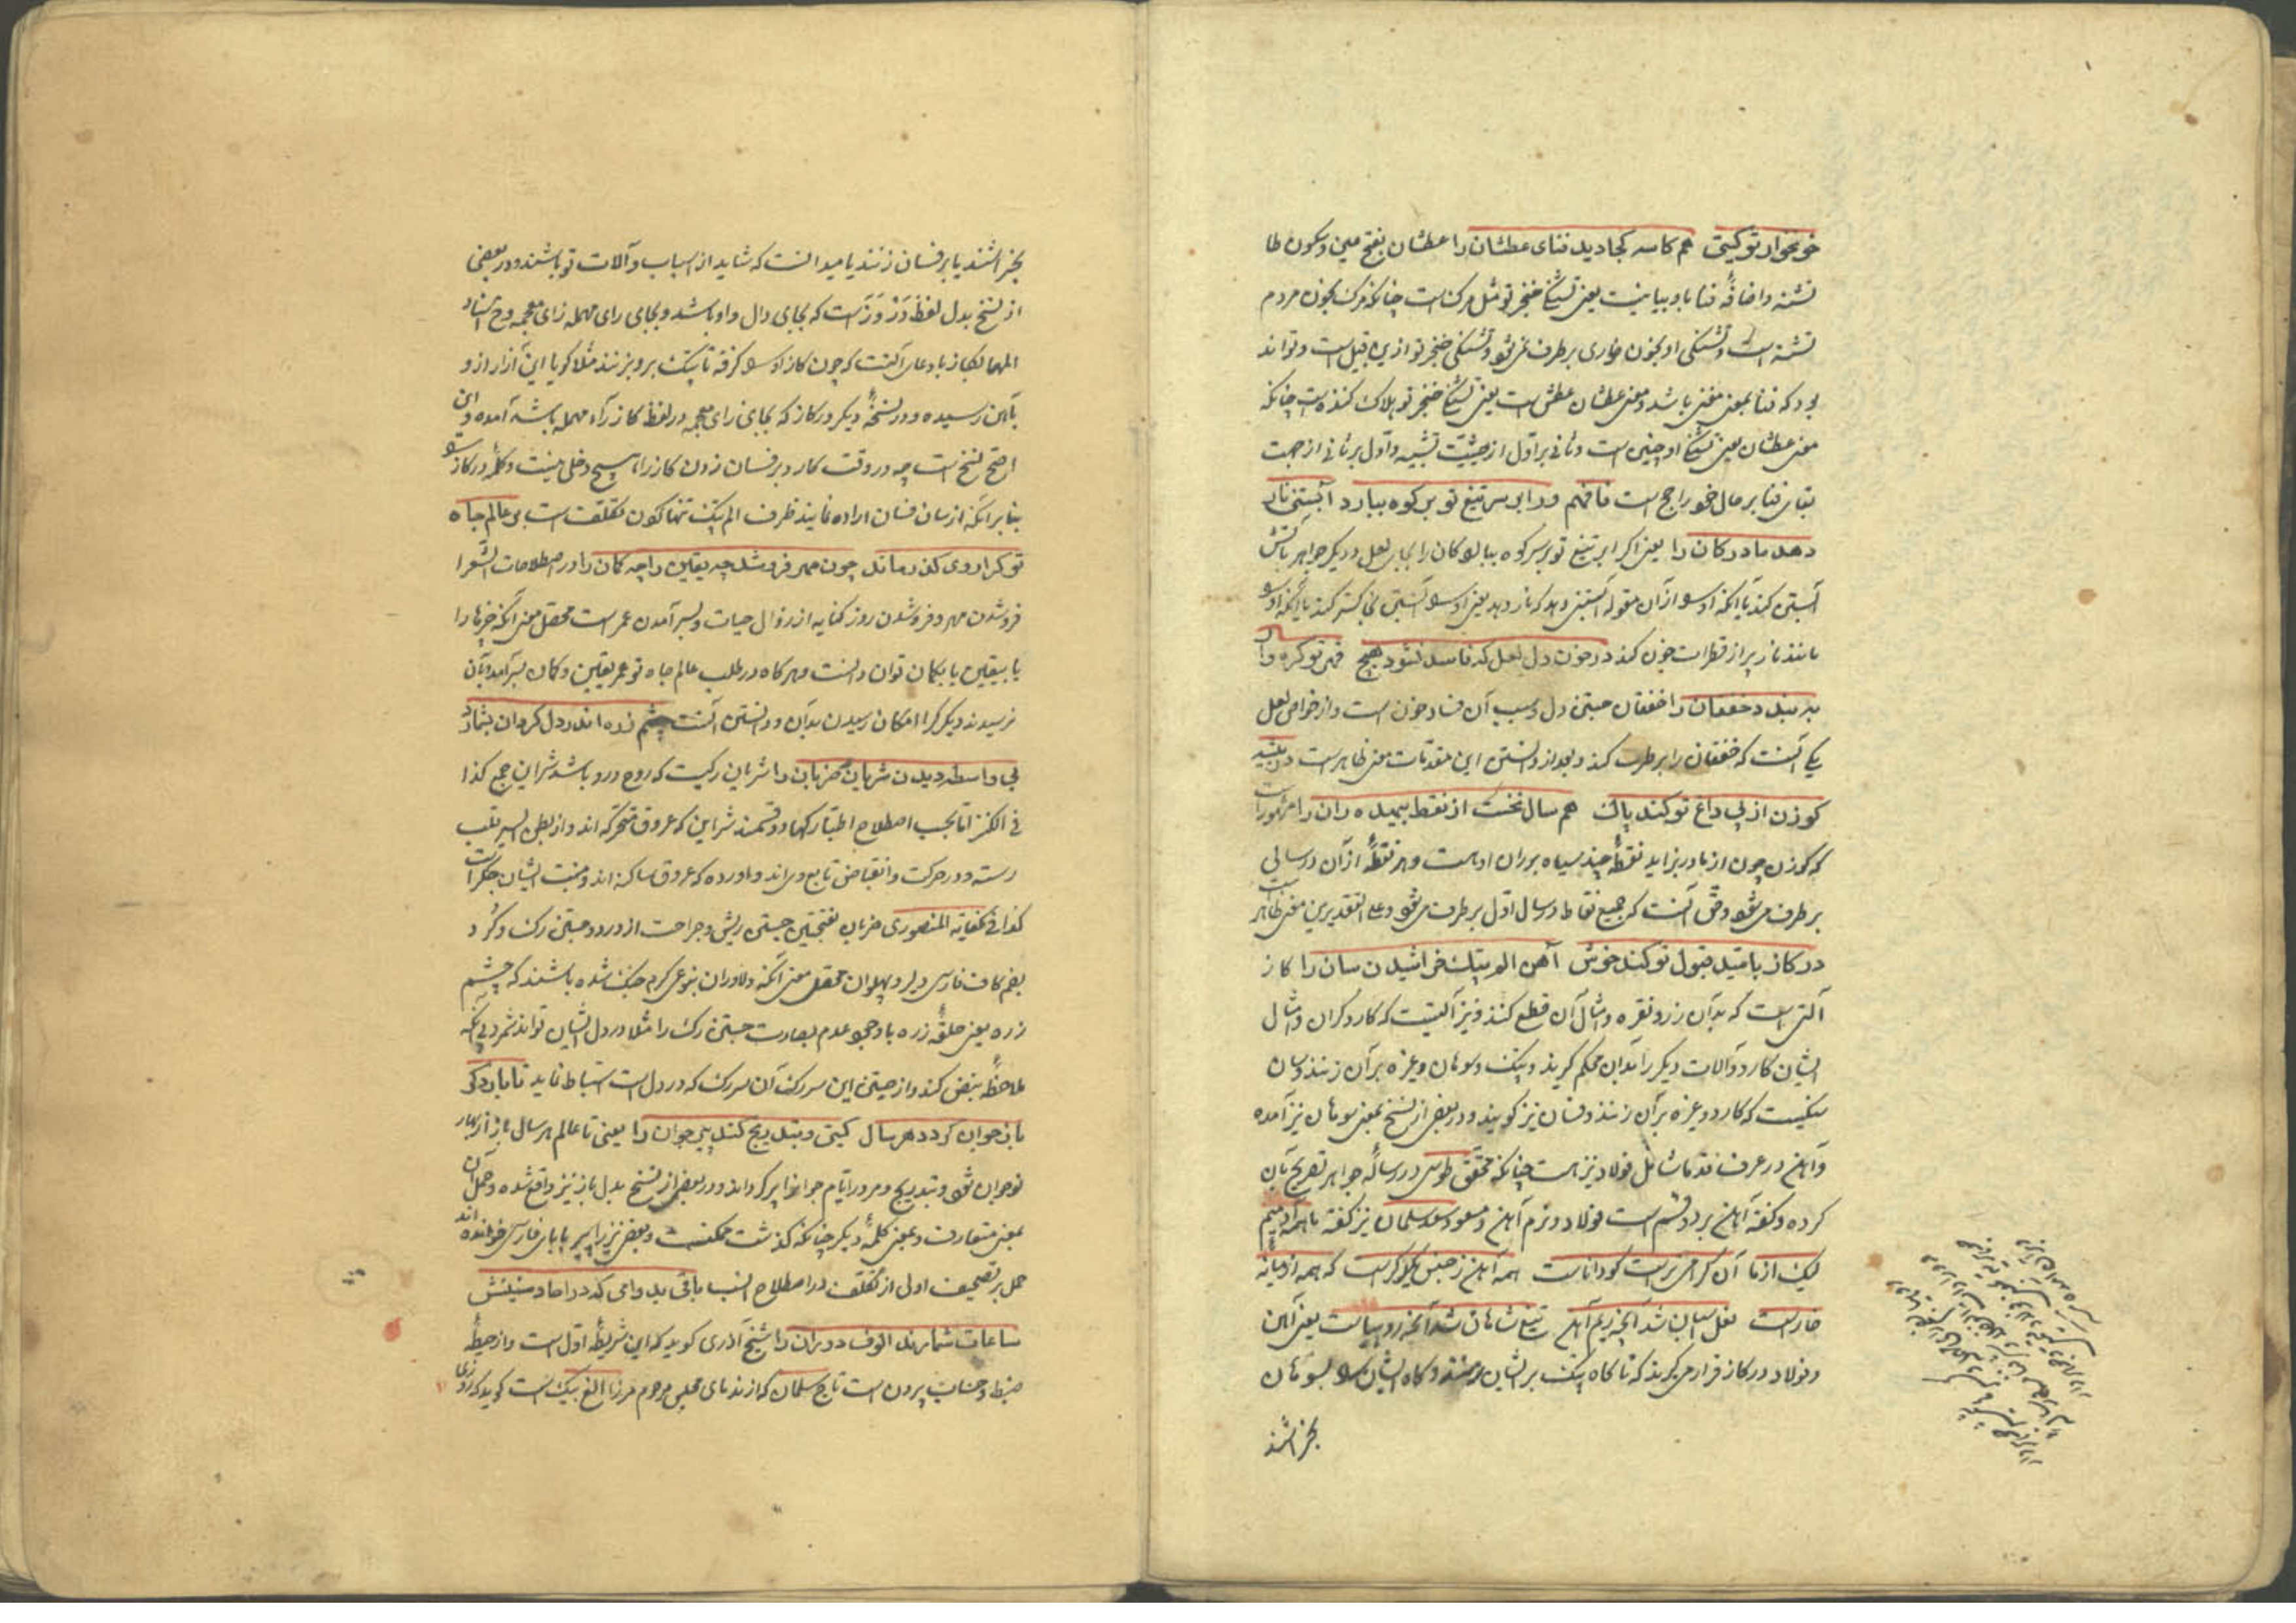 خونخوار تو گیتی هم کاسه کجا دید فنای عطشان را عطشان بفتح عین و سکون طا
تشنه و اضافهٔ فنا باو بیانیست یعنی تشنگی خنجر تو مثل مرکست چنانکه مرک بخون مردم
تشنه است و تشنکی او بخون خواری برطرف نمی‌شود و تشنکی خنجر تو ازین قبیل است و تواند
بود که فنا بمعنی مفنی باشد و معنی عطشان عطش است یعنی تشنگی خنجر تو هلاک کننده است چنانکه
معنی عطشان یعنی تشنگی او چنین است و ثانی بر اول از حیثیت تشبیه و اول بر ثانی از جهت
بقای فنا بر حال خود راجح است فافهم ور ابر سر تیغ تو بر کوه ببارد آبستنی نار
دهد مادر کان را یعنی اکر ابر تیغ تو بر سر کوه ببارد کان را بجای لعل و دیکر جواهر بآتش
آبستن کند یا آنکه او را از آن مقوله آبستنی دهد که بار دهد یعنی او را آبستنی خاکستر کند یا آنکه او را
مانند نار پر از قطرات خون کند در خون دل لعل که فاسد نشود هیچ قهر تو کره وار
ببندد خفقان را خفقان جستن دل و سبب آن فساد خون است و از خواص لعل
یکی آنست که خفقان را برطرف کند و بعد از دانستن این مقدمات معنی ظاهرست در بیشه
کوزن از پی داغ تو کند پاک هم سال نخست از نقط بیهده ران را مشهور است
که کوزن چون از مادر بزاید نقطهٔ چند سیاه بر ران اوست و هر نقطهٔ از آن در سالی
برطرف می‌شود و حق آنست که جمیع نقاط در سال اول برطرف می‌شود و علی التقدیرین معنی ظاهر است
در کاز بامید قبول تو کند خوش آهن الم پتک خراشیدن سان را کاز
آلتی است که بدان زر و نقره و امثال آن قطع کنند و نیز آلتیست که کاردکران و امثال
ایشان کارد و آلات دیکر را بدان محکم گیرند و پتک و سوهان و غیره بر آن زنند و سان
سنکیست که کارد و غیره بر آن زنند و فسان نیز کویند و در بعضی از نسخ بمعنی سوهان نیز آمده
و آهن در عرف قدما شامل فولاد نیز هست چنانکه محقق طوسی در رسالهٔ جواهر تصریح بآن
کرده و کفته آهن بر دو قسم است فولاد و نرم آهن و مسعود سعد سلمان نیز کفته ما همه آدمییم
لیک از ما آن کرامی ترست کو داناست همه آهن ز جنس یکدکرست که همه از میانهٔ
خاراست نعل اسبان شد آنچه نرم آهن تیغ شاهان شد آنچه روهیناست یعنی آهن
و فولاد در کاز قرار می‌گیرند که تا کاه پتک بر ایشان زنند و کاه ایشان را بسوهان
بخراشند
بخراشند یا بر فسان زنند یا میدانست که شاید از اسباب و آلات تو باشند و در بعضی
از نسخ بدل لفظ در وز است که بجای دال واو باشد و بجای رای مهمله زای معجمه و ح اسناد
الم بکاز بادعای آنست که چون کاز او را کرفته تا پتک برو بزنند مثلا کویا این آزار از و
بآهن رسیده و در نسخهٔ دیکر در کار که بجای زای معجمه در لفظ کاز راء مهمله باشد آمده و این
اصح نسخ است چه در وقت کارد بر فسان زدن کاز را هیچ دخلی نیست و کلمهٔ در کاز را
بنابر آنکه از سان فسان اراده نمایند ظرف الم پتک تنها کردن تکلف است بر عالم جاه
تو کرا روی کذر ماند چون مهر فرو شد چه یقین را چه کمان را در اصطلاحات الشعرا
فرو شدن مهر و فرو شدن روز کنایه از زوال حیات و بسر آمدن عمر است محصل معنی آنکه چیزها را
یا بیقین یا بکمان توان دانست و هر کاه در طلب عالم جاه تو عمر یقین و کمان بسر آمد و بآن
نرسیدند دیکر کرا امکان رسیدن بدان و دانستن آنست چشم زره اندر دل کردان بشمارد
بی واسطهٔ دیدن شریان ضربان را شریان رکیست که روح درو باشد شرایین جمع کذا
فی الکنز اما بحسب اصطلاح اطبا رکها دو قسمند شرایین که عروق متحرکه‌اند و از بطن ایسر قلب
رسته و در حرکت و انقباض تابع وی‌اند و اورده که عروق ساکنه‌اند و منبت ایشان جگر است
کذا فی کفایة المنصوری ضربان بفتحتین جستن ریش و جراحت از درد و جستن رک و کرد
بضم کاف فارسی دلیر و پهلوان محصل معنی آنکه دلاوران بنوعی کرم جنک شده باشند که چشم
زره یعنی حلقهٔ زره با وجود عدم بصارت جستن رک را مثلا در دل ایشان تواند شمرد بی آنکه
ملاحظهٔ نبض کند و از جستن این سر رک آن سر رک که در دل است استنباط نماید تا بار دکر
باز جوان کردد هر سال کیتی و بتدریج کند پیر جوان را یعنی تا عالم هر سال باز از بهار
نوجوان شود و بتدریج و مرور ایام جوانرا پیر کرداند و در بعضی از نسخ بدل باز نیز واقع شده و حمل آن
بمعنی متعارف و بمعنی کلمهٔ دیکر چنانکه کذشت ممکنست و بعضی نیز را پیر بابای فارسی خوانده‌اند
حمل بر تصحیف اولی از تکلف در اصطلاح انسب باقی بدوامی که در احاد سنینش
ساعات شمارند الوف دوران را شیخ آذری کوید که این شریطهٔ اول است و از حیطهٔ
ضبط و حساب بیرون است تاج سلمان که از ندمای مجلس مرحوم میرزا الغ بیک است کوید که از وی